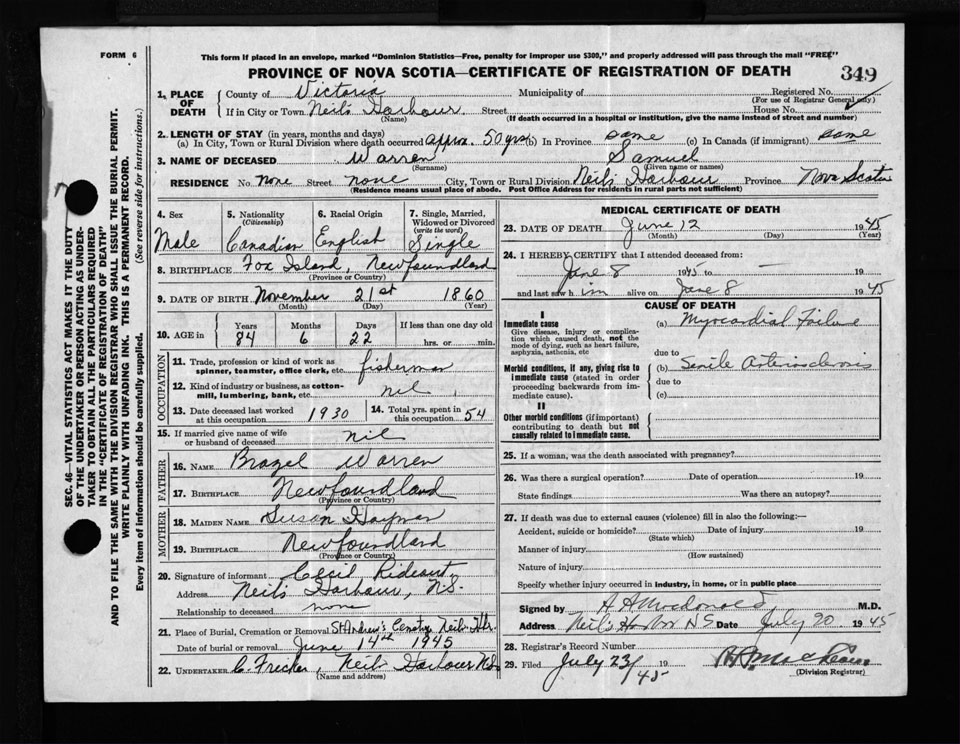 FORM 6
This form if placed in an envelope, marked "Dominion Statistics—Free, penalty for improper use $300," and properly addressed will pass through the mail "FREE"
PROVINCE OF NOVA SCOTIA—CERTIFICATE OF REGISTRATION OF DEATH
349
1. PLACE OF DEATH
County of Victoria Municipality of Registered No.
(For use of Registrar General only)
If in City or Town Neil's Harbour Street House No.
(Name) (If death occurred in a hospital or institution, give the name instead of street and number)
2. LENGTH OF STAY (in years, months and days)
(a) In City, Town or Rural Division where death occurred approx. 50 yrs (b) In Province same (c) In Canada (if immigrant) same
3. NAME OF DECEASED Warren Samuel
(Surname) (Given name or names)
RESIDENCE No. none Street none City, Town or Rural Division Neil's Harbour Province Nova Scotia
(Residence means usual place of abode. Post Office Address for residents in rural parts not sufficient)
SEC. 46—VITAL STATISTICS ACT MAKES IT THE DUTY
OF THE UNDERTAKER OR PERSON ACTING AS UNDER-
TAKER TO OBTAIN ALL THE PARTICULARS REQUIRED
IN THE "CERTIFICATE OF REGISTRATION OF DEATH"
AND TO FILE THE SAME WITH THE DIVISION REGISTRAR WHO SHALL ISSUE THE BURIAL PERMIT.
WRITE PLAINLY WITH UNFADING INK. THIS IS A PERMANENT RECORD.
Every item of information should be carefully supplied. (See reverse side for instructions.)
4. Sex
Male
5. Nationality
(Citizenship)
Canadian
6. Racial Origin
English
7. Single, Married, Widowed or Divorced
(write the word)
Single
8. BIRTHPLACE Fox Island, Newfoundland
(Province or Country)
9. DATE OF BIRTH November 21st 1860
(Month) (Day) (Year)
10. AGE in Years Months Days If less than one day old
84 6 22 hrs. or min.
OCCUPATION
11. Trade, profession or kind of work as
spinner, teamster, office clerk, etc. fisherman
12. Kind of industry or business, as cotton-
mill, lumbering, bank, etc. nil
13. Date deceased last worked
at this occupation 1930
14. Total yrs. spent in
this occupation 54
15. If married give name of wife
or husband of deceased nil
FATHER
16. NAME Brazel Warren
17. BIRTHPLACE Newfoundland
(Province or Country)
MOTHER
18. MAIDEN NAME Susan Hayman
19. BIRTHPLACE Newfoundland
(Province or Country)
20. Signature of informant Cecil Rideout
Address Neil's Harbour, N.S.
Relationship to deceased none
21. Place of Burial, Cremation or Removal St Andrew's Cemetry Neil's Hbr.
Date of burial or removal June 14th 1945
22. UNDERTAKER C. Fricker, Neil's Harbour N.S.
(Name and address)
MEDICAL CERTIFICATE OF DEATH
23. DATE OF DEATH June 12 1945
(Month) (Day) (Year)
24. I HEREBY CERTIFY that I attended deceased from:
June 8 1945 to —
and last saw him alive on June 8 1945
CAUSE OF DEATH
I
Immediate cause
Give disease, injury or complica-
tion which caused death, not the
mode of dying, such as heart failure,
asphyxia, asthenia, etc
(a) Myocardial Failure
due to
Morbid conditions, if any, giving rise to
immediate cause (stated in order
proceeding backwards from im-
mediate cause).
(b) Senile Arteriosclerosis
due to
(c)
II
Other morbid conditions (if important)
contributing to death but not
causally related to immediate cause.
25. If a woman, was the death associated with pregnancy?
26. Was there a surgical operation? Date of operation 19
State findings Was there an autopsy?
27. If death was due to external causes (violence) fill in also the following:—
Accident, suicide or homicide? Date of injury 19
(State which)
Manner of injury
(How sustained)
Nature of injury
Specify whether injury occurred in industry, in home, or in public place
Signed by A A Macdonald M.D.
Address Neil's Harbor N S Date July 20 1945
28. Registrar's Record Number
29. Filed July 23/45 19
(Division Registrar)